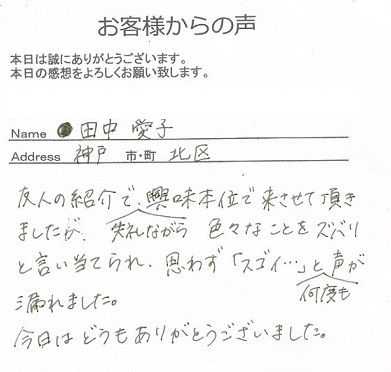 お客様からの声
本日は誠にありがとうございます。
本日の感想をよろしくお願い致します。
Name 田中 愛子
Address 神戸 市・町 北区
友人の紹介で、興味本位で来させて頂き
ましたが、失礼ながら 色々なことをズバリ
と言い当てられ、思わず「スゴイ…」と何度も声が
漏れました。
今日はどうもありがとうございました。